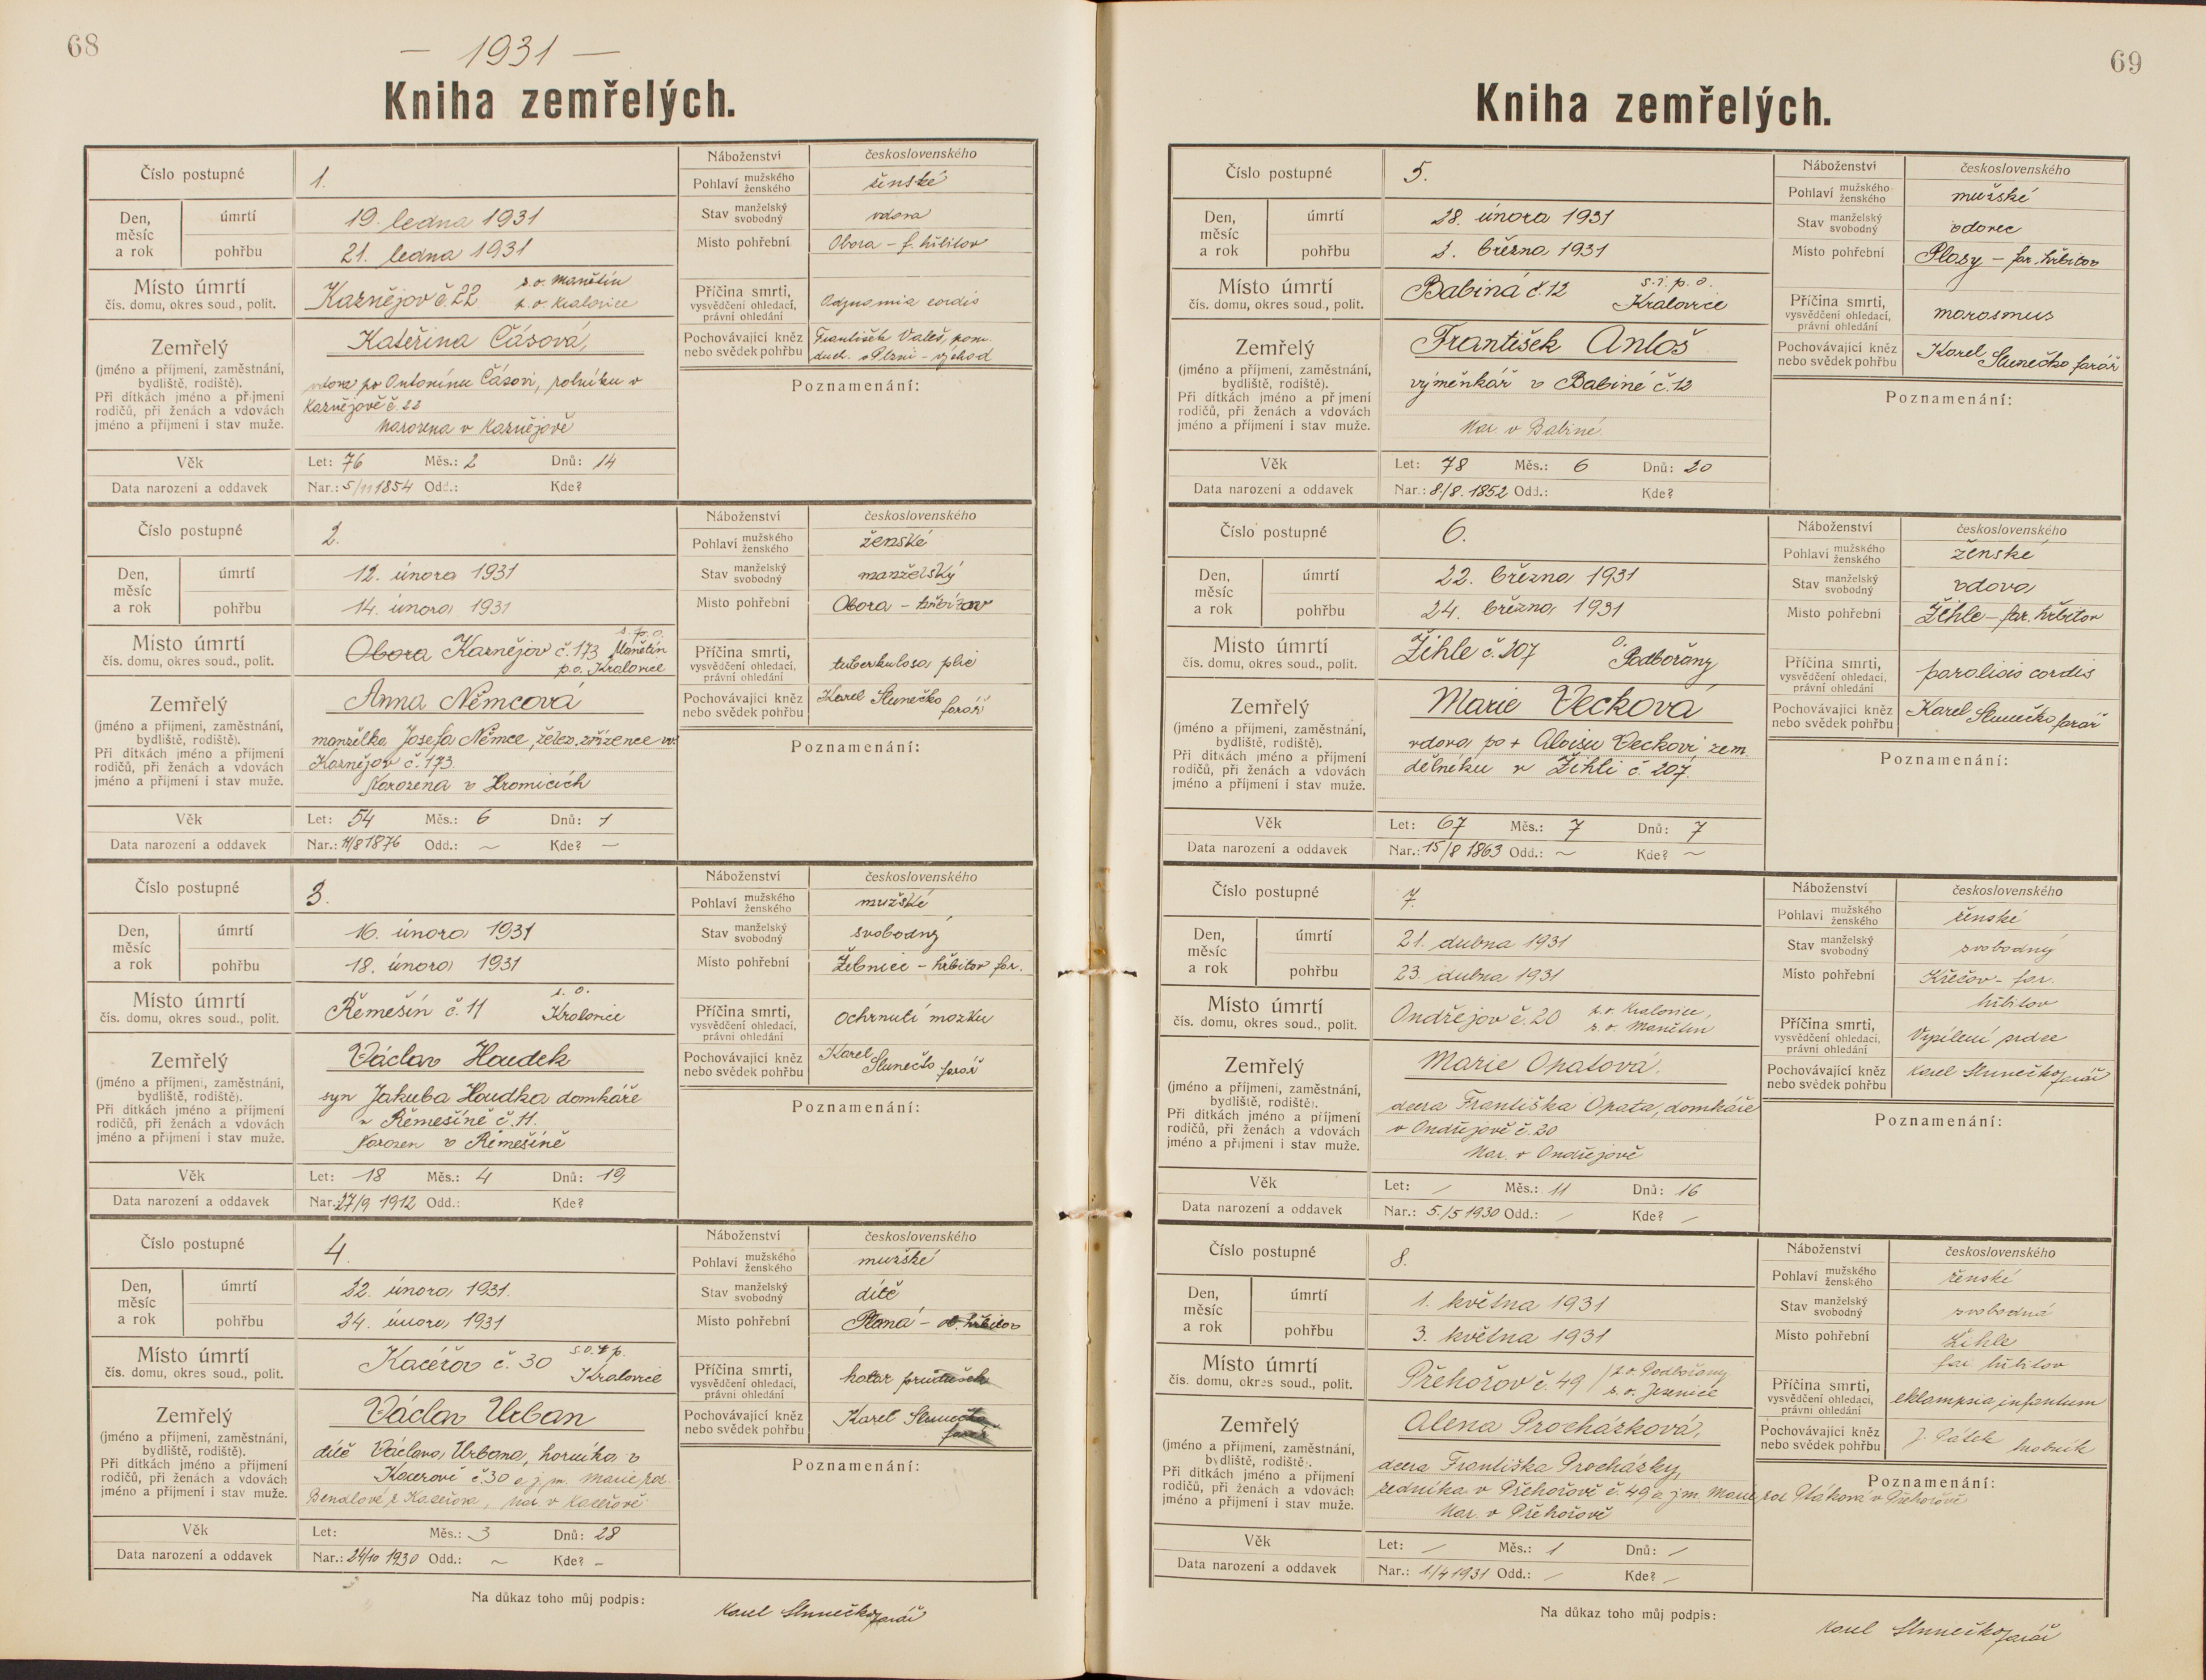 68
— 1931 —
Kniha zemřelých.
Číslo postupné 1.
Náboženství československého
Pohlaví mužského ženského ženské
Den, měsíc a rok úmrtí 19. ledna 1931
Stav manželský svobodný vdova
pohřbu 21. ledna 1931
Místo pohřební Obora - f. hřbitov
Místo úmrtí čís. domu, okres soud., polit. Kaznějov č. 22 s. o. Manětín p. o. Kralovice
Příčina smrti, vysvědčení ohledací, právní ohledání Adynamia cordis
Pochovávající kněz nebo svědek pohřbu František Valeš, pom. duch. v Plzni - východ
Zemřelý (jméno a příjmení, zaměstnání, bydliště, rodiště). Při dítkách jméno a příjmení rodičů, při ženách a vdovách jméno a příjmení i stav muže.
Kateřina Čásová,
vdova po Antonínu Čásovi, rolníku v
Kaznějově č. 22
Narozena v Kaznějově
Poznamenání:
Věk Let: 76 Měs.: 2 Dnů: 14
Data narození a oddavek Nar.: 5/11 1854 Odd.: Kde?
Číslo postupné 2.
Náboženství československého
Pohlaví mužského ženského ženské
Den, měsíc a rok úmrtí 12. února 1931
Stav manželský svobodný manželský
pohřbu 14. února 1931
Místo pohřební Obora - hřbitov
Místo úmrtí čís. domu, okres soud., polit. Obora Kaznějov č. 173 s. p. o. Manětín p. o. Kralovice
Příčina smrti, vysvědčení ohledací, právní ohledání tuberkulosa plic
Pochovávající kněz nebo svědek pohřbu Karel Slunečko farář
Zemřelý (jméno a příjmení, zaměstnání, bydliště, rodiště). Při dítkách jméno a příjmení rodičů, při ženách a vdovách jméno a příjmení i stav muže.
Anna Němcová
manželka Josefa Němce, želez. zřízence v
Kaznějov č. 173.
Narozena v Hromicích
Poznamenání:
Věk Let: 54 Měs.: 6 Dnů: 1
Data narození a oddavek Nar.: 11/8 1876 Odd.: ~ Kde? —
Číslo postupné 3.
Náboženství československého
Pohlaví mužského ženského mužské
Den, měsíc a rok úmrtí 16. února 1931
Stav manželský svobodný svobodný
pohřbu 18. února 1931
Místo pohřební Žebnici - hřbitov far.
Místo úmrtí čís. domu, okres soud., polit. Řemešín č. 11 s. o. Kralovice
Příčina smrti, vysvědčení ohledací, právní ohledání Ochrnutí mozku
Pochovávající kněz nebo svědek pohřbu Karel Slunečko farář
Zemřelý (jméno a příjmení, zaměstnání, bydliště, rodiště). Při dítkách jméno a příjmení rodičů, při ženách a vdovách jméno a příjmení i stav muže.
Václav Houdek
syn Jakuba Houdka domkáře
v Řemešíně č. 11.
Narozen v Řemešíně
Poznamenání:
Věk Let: 18 Měs.: 4 Dnů: 19
Data narození a oddavek Nar.: 27/9 1912 Odd.: Kde?
Číslo postupné 4.
Náboženství československého
Pohlaví mužského ženského mužské
Den, měsíc a rok úmrtí 22. února 1931.
Stav manželský svobodný dítě
pohřbu 24. února 1931
Místo pohřební Planá - o. hřbitov
Místo úmrtí čís. domu, okres soud., polit. Kaceřov č. 30 s. o. p. Kralovice
Příčina smrti, vysvědčení ohledací, právní ohledání katar průdušek
Pochovávající kněz nebo svědek pohřbu Karel Slunečko farář
Zemřelý (jméno a příjmení, zaměstnání, bydliště, rodiště). Při dítkách jméno a příjmení rodičů, při ženách a vdovách jméno a příjmení i stav muže.
Václav Urban
dítě Václava Urbana, horníka v
Kaceřově č. 30 a j. m. Marie roz.
Bendlové z Kaceřova, nar. v Kaceřově
Poznamenání:
Věk Let: Měs.: 3 Dnů: 28
Data narození a oddavek Nar.: 24/10 1930 Odd.: ~ Kde? —
Na důkaz toho můj podpis: Karel Slunečko farář
69
Kniha zemřelých.
Číslo postupné 5.
Náboženství československého
Pohlaví mužského ženského mužské
Den, měsíc a rok úmrtí 28. února 1931
Stav manželský svobodný vdovec
pohřbu 2. března 1931
Místo pohřební Plasy - far. hřbitov
Místo úmrtí čís. domu, okres soud., polit. Babiná č. 12 s. i. p. o. Kralovice
Příčina smrti, vysvědčení ohledací, právní ohledání marasmus
Pochovávající kněz nebo svědek pohřbu Karel Slunečko farář
Zemřelý (jméno a příjmení, zaměstnání, bydliště, rodiště). Při dítkách jméno a příjmení rodičů, při ženách a vdovách jméno a příjmení i stav muže.
František Antoš
výměnkář v Babiné č. 12
Nar. v Babiné
Poznamenání:
Věk Let: 78 Měs.: 6 Dnů: 20
Data narození a oddavek Nar.: 8./8. 1852 Odd.: Kde?
Číslo postupné 6.
Náboženství československého
Pohlaví mužského ženského ženské
Den, měsíc a rok úmrtí 22. března 1931
Stav manželský svobodný vdova
pohřbu 24. března 1931
Místo pohřební Žihle - far. hřbitov
Místo úmrtí čís. domu, okres soud., polit. Žihle č. 207 o. Podbořany
Příčina smrti, vysvědčení ohledací, právní ohledání paralisis cordis
Pochovávající kněz nebo svědek pohřbu Karel Slunečko farář
Zemřelý (jméno a příjmení, zaměstnání, bydliště, rodiště). Při dítkách jméno a příjmení rodičů, při ženách a vdovách jméno a příjmení i stav muže.
Marie Vecková
vdova po + Aloisu Veckovi zem.
dělníku v Žihli č. 207.
Poznamenání:
Věk Let: 67 Měs.: 7 Dnů: 7
Data narození a oddavek Nar.: 15/8 1863 Odd.: ~ Kde? ~
Číslo postupné 7.
Náboženství československého
Pohlaví mužského ženského ženské
Den, měsíc a rok úmrtí 21. dubna 1931
Stav manželský svobodný svobodný
pohřbu 23. dubna 1931
Místo pohřební Křečov - far. hřbitov
Místo úmrtí čís. domu, okres soud., polit. Ondřejov č. 20 p. o. Kralovice, s. o. Manětín
Příčina smrti, vysvědčení ohledací, právní ohledání Vypílení srdce
Pochovávající kněz nebo svědek pohřbu Karel Slunečko farář
Zemřelý (jméno a příjmení, zaměstnání, bydliště, rodiště). Při dítkách jméno a příjmení rodičů, při ženách a vdovách jméno a příjmení i stav muže.
Marie Opatová.
dcera Františka Opata, domkáře
v Ondřejově č. 20
Nar. v Ondřejově
Poznamenání:
Věk Let: / Měs.: 11 Dnů: 16
Data narození a oddavek Nar.: 5./5 1930 Odd.: / Kde? /
Číslo postupné 8.
Náboženství československého
Pohlaví mužského ženského ženské
Den, měsíc a rok úmrtí 1. května 1931
Stav manželský svobodný svobodná
pohřbu 3. května 1931
Místo pohřební Žihle far. hřbitov
Místo úmrtí čís. domu, okres soud., polit. Přehořov č. 49 / p. o. Podbořany s. o. Jesenice
Příčina smrti, vysvědčení ohledací, právní ohledání eklampsia infantum
Pochovávající kněz nebo svědek pohřbu J. Pátek hrobník
Zemřelý (jméno a příjmení, zaměstnání, bydliště, rodiště). Při dítkách jméno a příjmení rodičů, při ženách a vdovách jméno a příjmení i stav muže.
Alena Procházková,
dcera Františka Procházky,
Poznamenání:
zedníka v Přehořově č. 49 a j m. Marie roz Ptáková v Přehořově
Nar. v Přehořově
Věk Let: / Měs.: 1 Dnů: /
Data narození a oddavek Nar.: 1/4 1931 Odd.: / Kde? /
Na důkaz toho můj podpis: Karel Slunečko farář